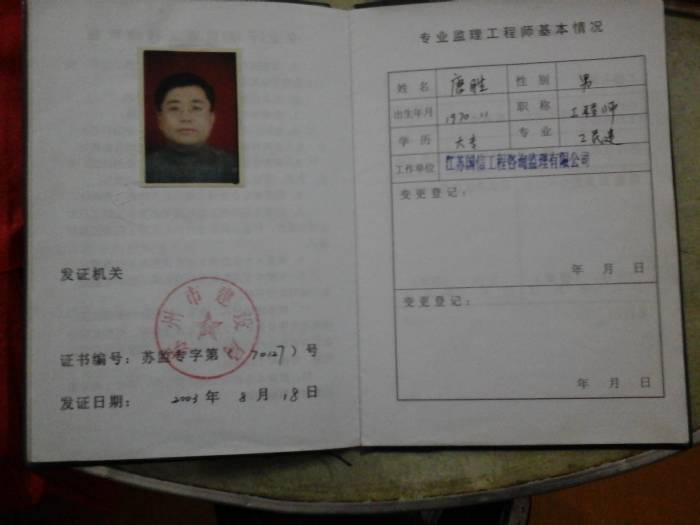 发证机关
州市建设
证书编号：苏监专字第（ 70127）号
发证日期： 2003年 8月 18日
专业监理工程师基本情况
姓名 唐胜 性别 男
出生年月 1970.11 职称 工程师
学历 大专 专业 工民建
工作单位 江苏国信工程咨询监理有限公司
变更登记：
年 月 日
变更登记：
年 月 日